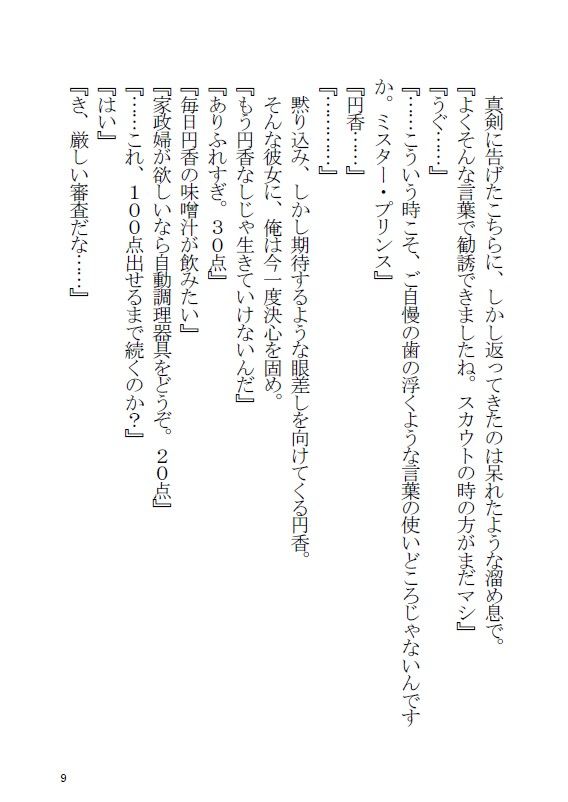 真剣に告げたこちらに、しかし返ってきたのは呆れたような溜め息で。
『よくそんな言葉で勧誘できましたね。スカウトの時の方がまだマシ』
『うぐ……』
『……こういう時こそ、ご自慢の歯の浮くような言葉の使いどころじゃないんです
か。ミスター・プリンス』
『円香……』
『…………』
黙り込み、しかし期待するような眼差しを向けてくる円香。
そんな彼女に、俺は今一度決心を固め。
『もう円香なしじゃ生きていけないんだ』
『ありふれすぎ。３０点』
『毎日円香の味噌汁が飲みたい』
『家政婦が欲しいなら自動調理器具をどうぞ。２０点』
『……これ、１００点出せるまで続くのか？』
『はい』
『き、厳しい審査だな……』
9